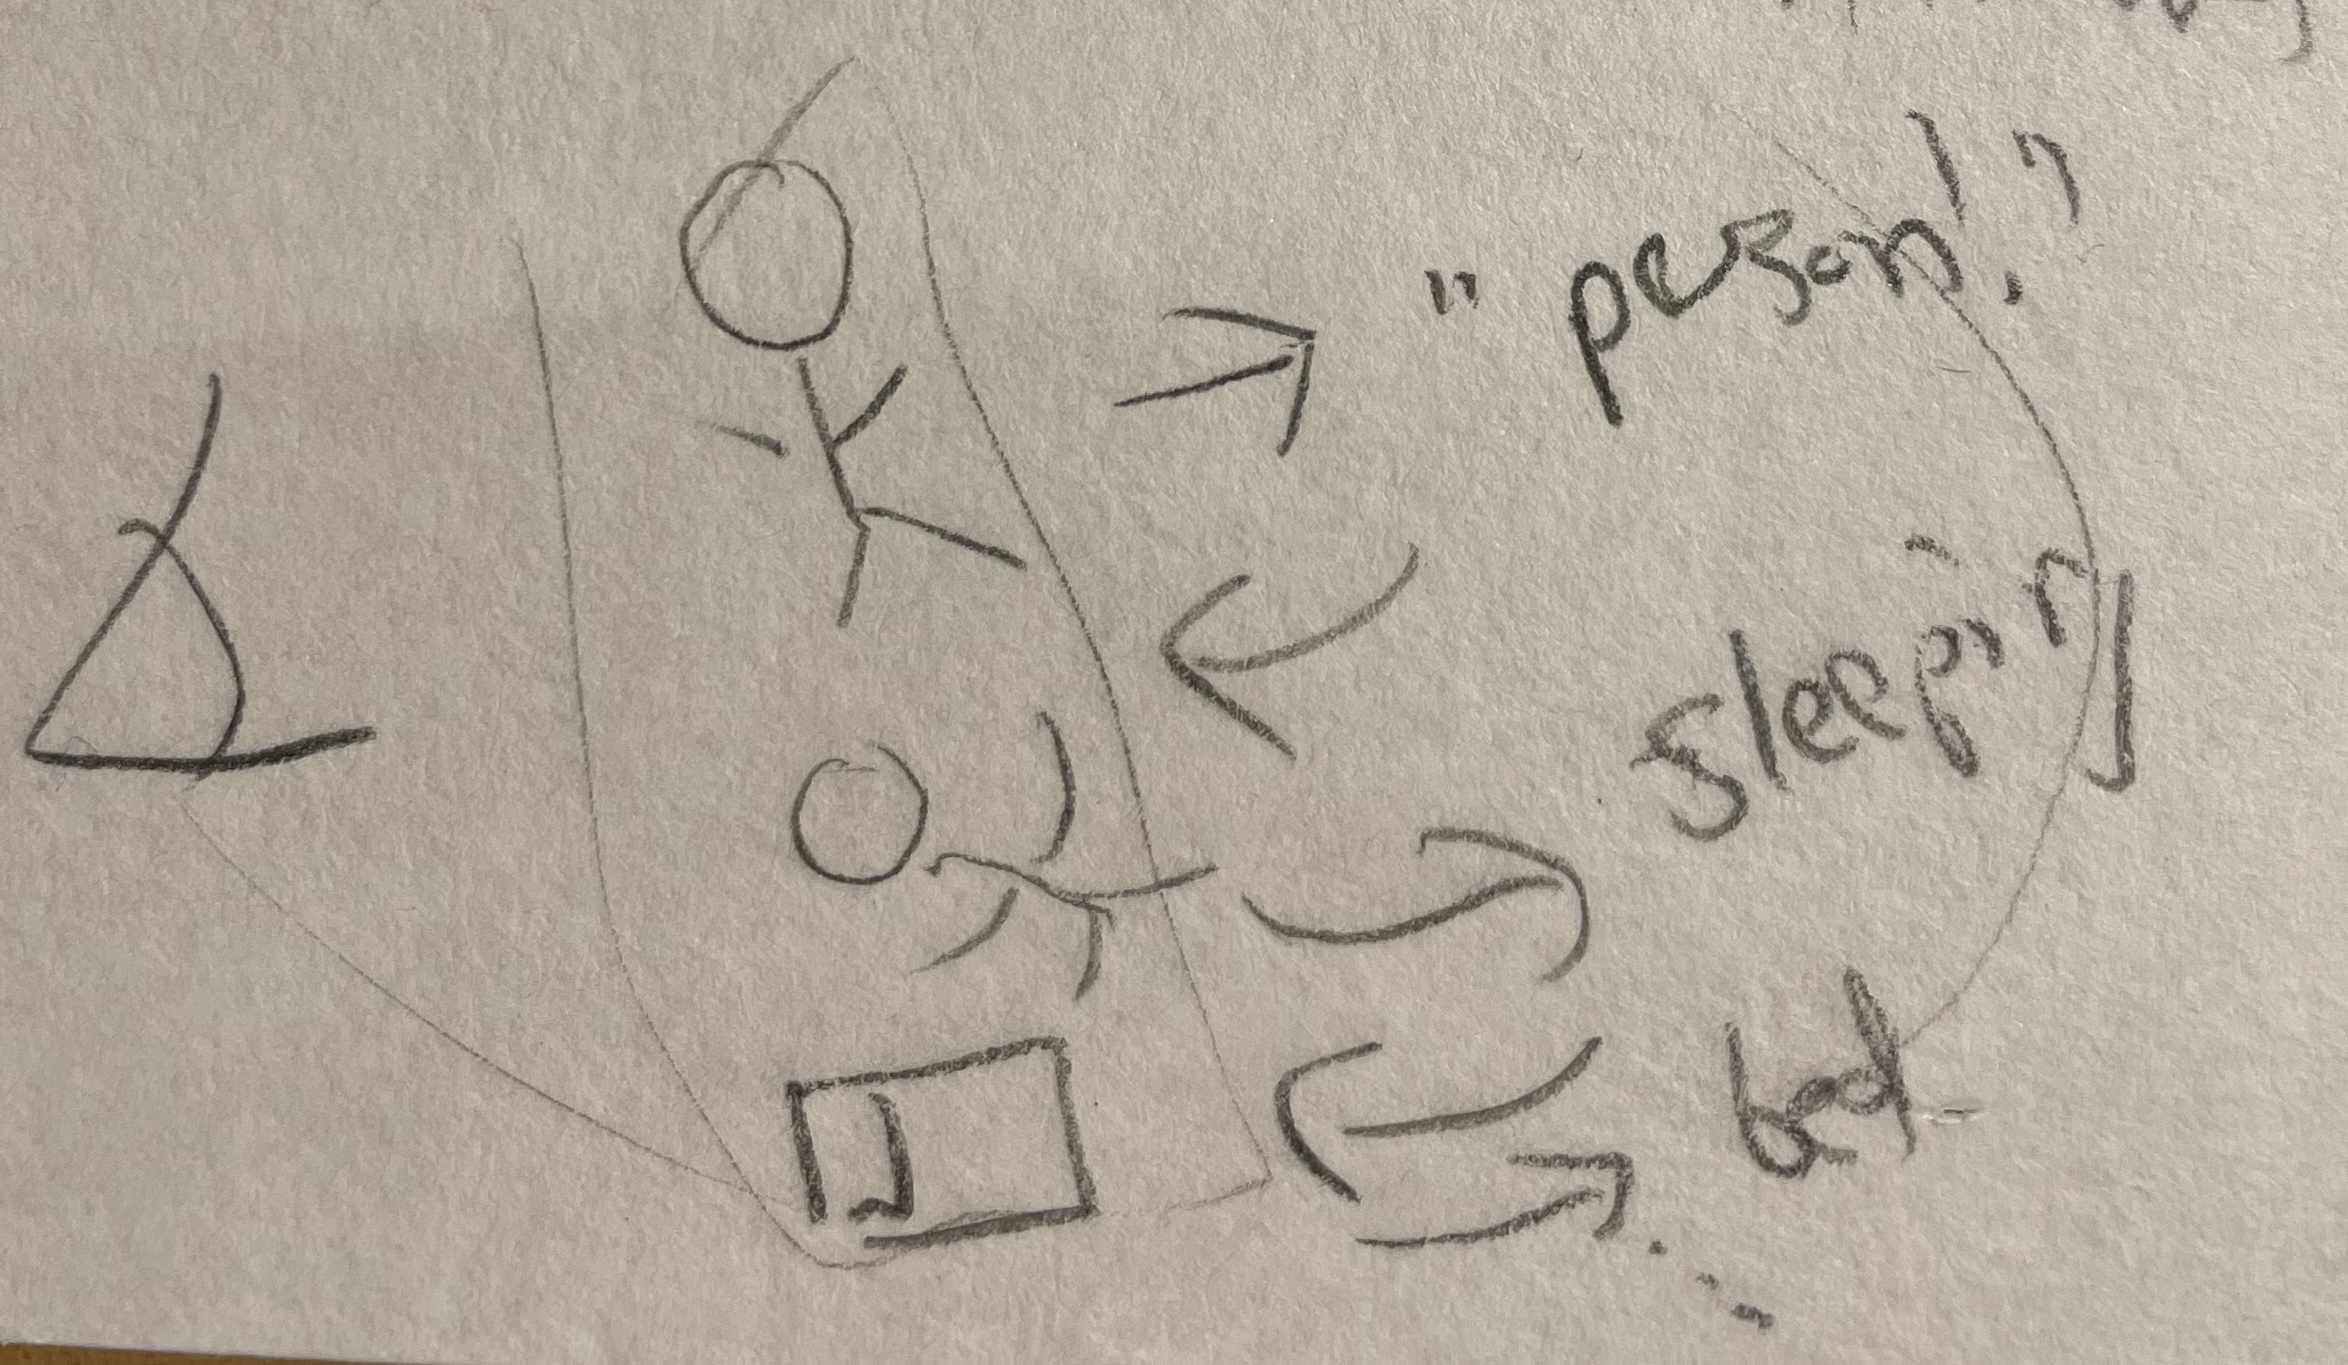 "person!"
sleeping
bed